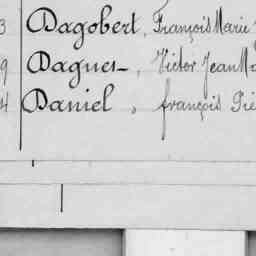 3 Dagobert, François Marie
9 Dagues, Victor Jean
4 Daniel, françois